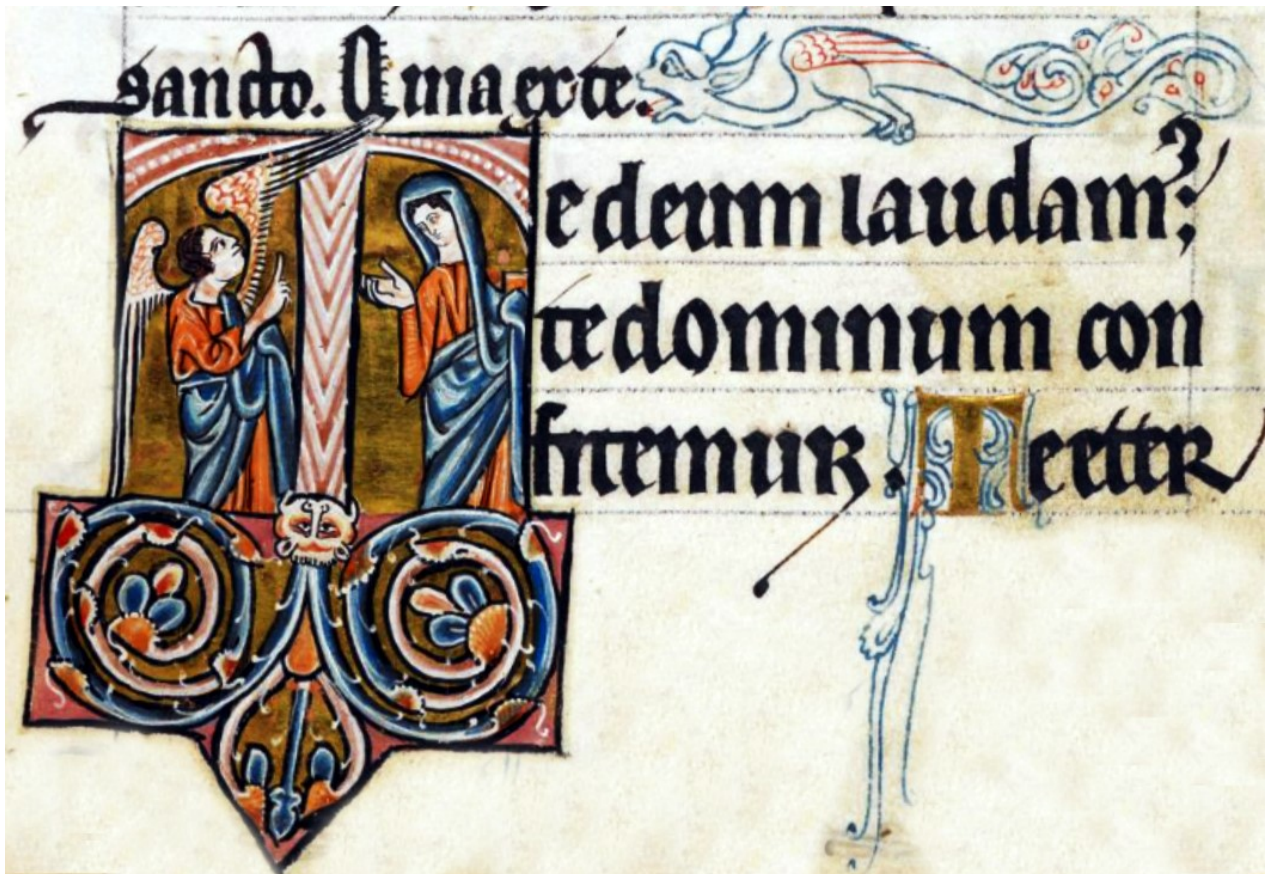 sancto. Quia ex te.
Te deum laudamꝰ;
te dominum con
fitemur. Te etter